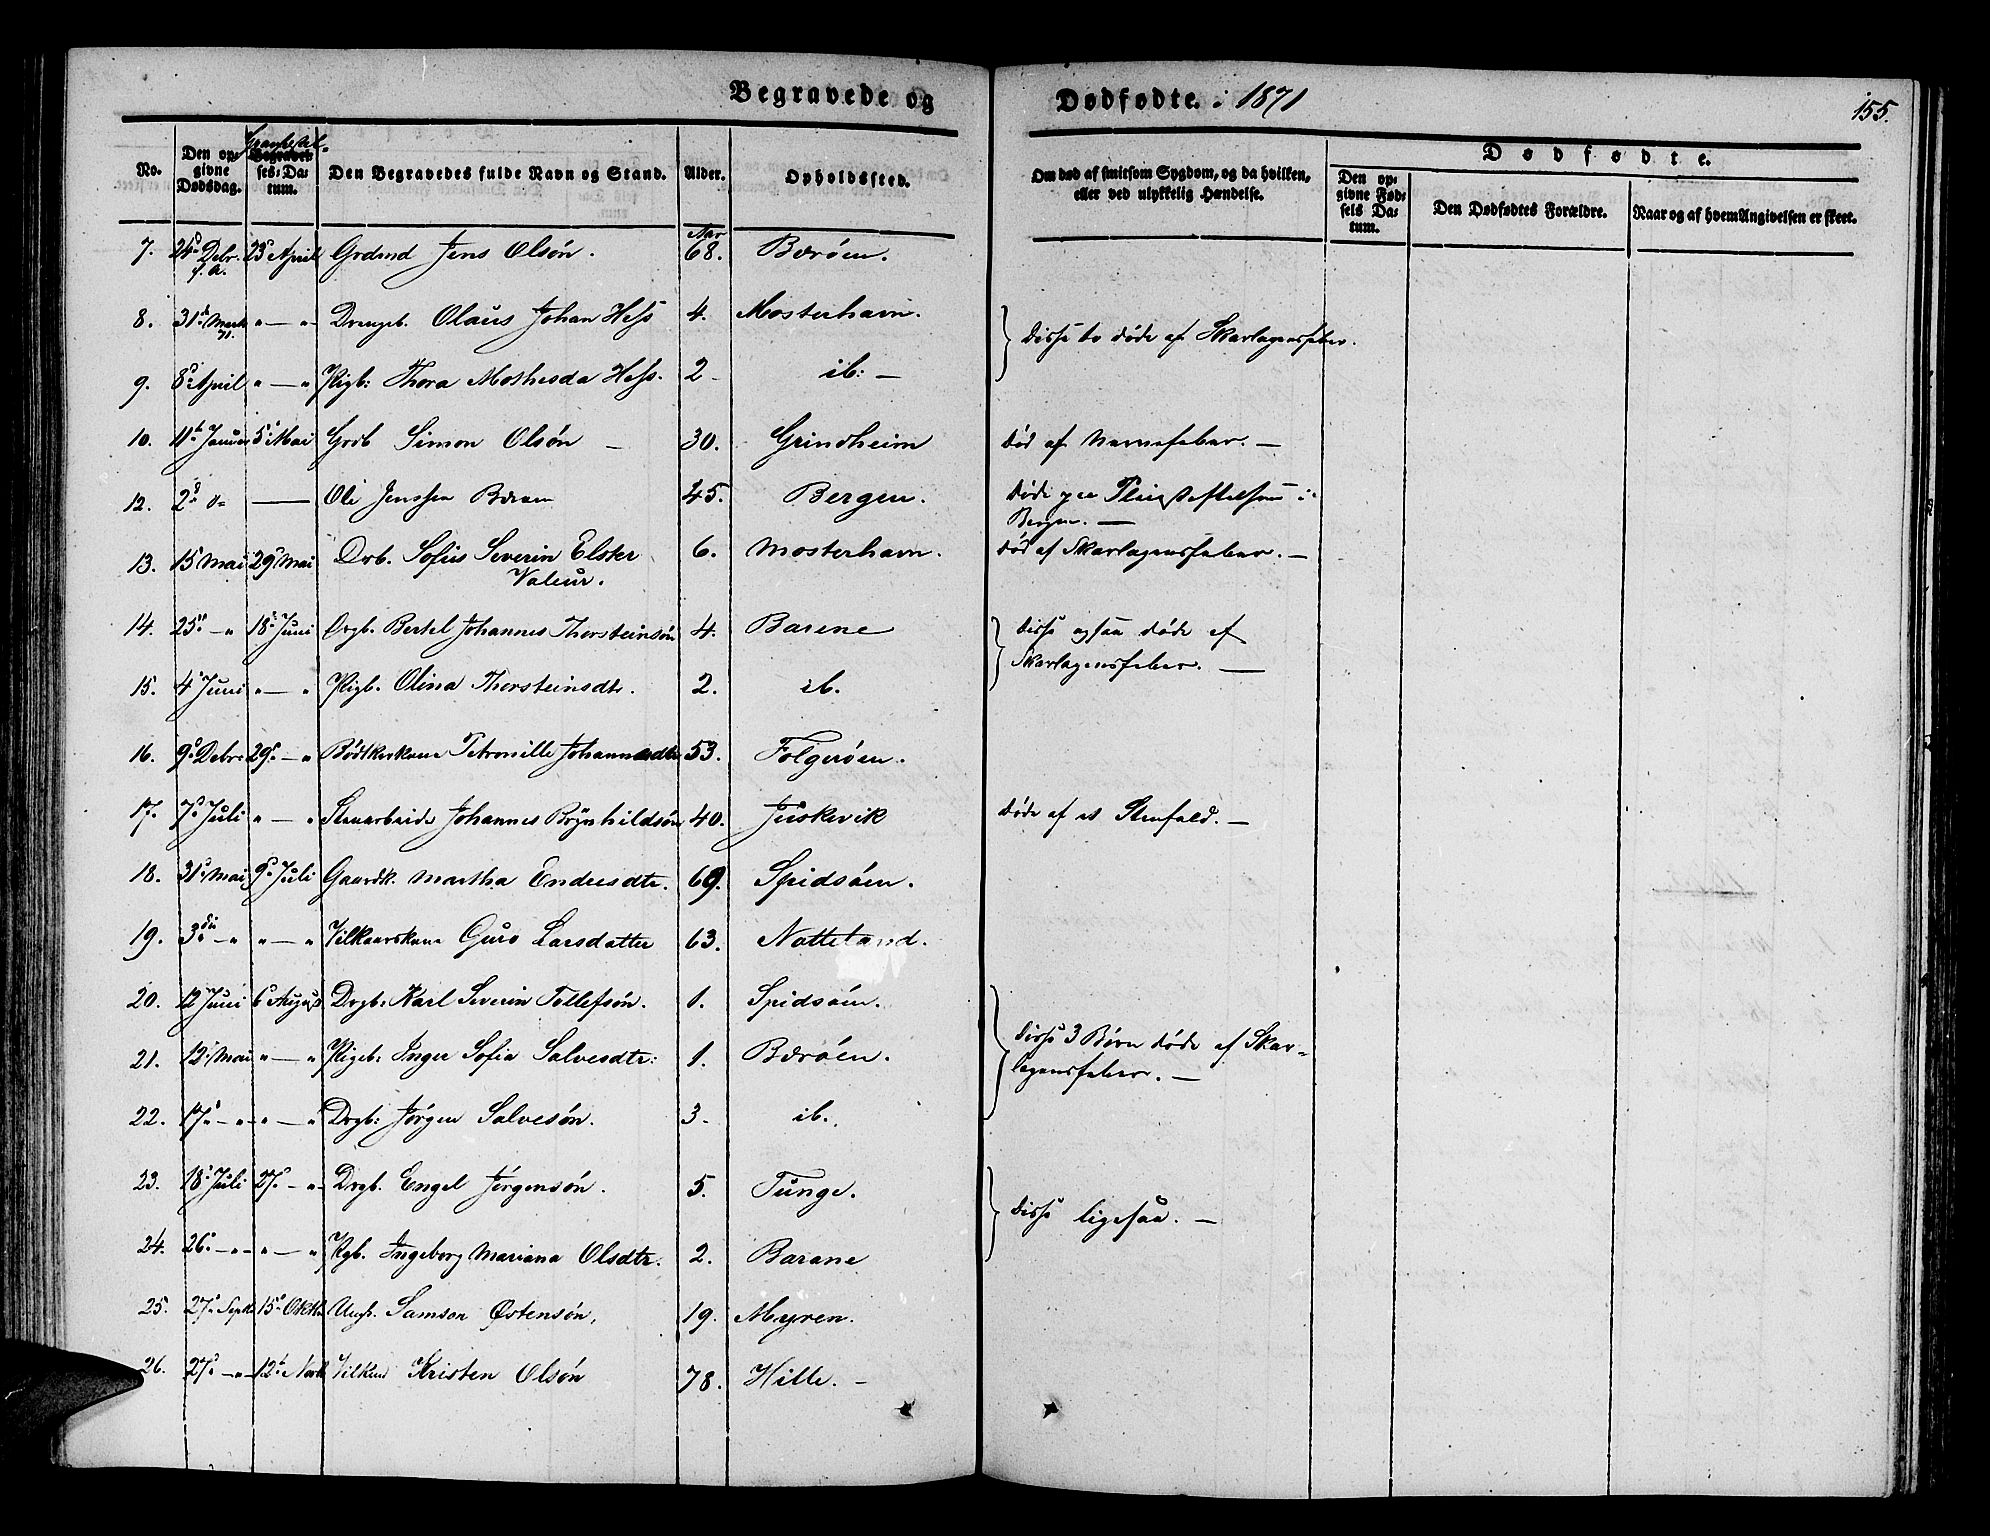 Begravede og Dødfødte. i 1871
155.
No.
Den opgivne Dødsdag.
Begravelses-Datum.
Den Begravedes fulde Navn og Stand.
Alder.
Opholdssted.
Om død af smitsom Sygdom, og da hvilken, eller ved ulykkelig Hændelse.
Dødfødte.
Den opgivne Fødsels Datum.
Den Dødfødtes Forældre.
Naar og af hvem Angivelsen er skeet.
7. 24d Debr. f. A. 23d April Grdmd Jens Olsøn. Aar 68. Børøen.
8. 31d Marts 71. " — " Drengeb. Olaus Johan Hess 4. Mosterhavn.
} disse to døde af Skarlagensfeber.
9. 8d April " — " Pigb: Thora Mathesda Hess. 2 - ib: —
10. 11te Januar 5d Mai Grdb Simon Olsøn — 30. Grindheim død af Nervefeber. —
12. 2d d= — Ole Jenssen 45. Bergen. døde paa Pleiestiftelsen i
Bergen. —
13. 15d Mai 29d Mai Drb. Sofus Severin Elster 6. Mosterhavn. død af Skarlagensfeber. —
Valeur.
14. 25d — " 18d Juni Drgb. Bertel Johannes Thorsteinsøn 4. Barene } disse ogsaa døde af
Skarlagensfeber. —
15. 4d Juni " — " Pigb. Olina Thorsteinsdtr. 2. ib.
16. 9d Debr. 29d — " Bødkerkone Petronille Johannesdtr 53. Folgerøen.
17. 7d Juli " — " Stenarbeider Johannes Brynhildsøn 40. Juskevik døde af et Stenfald. —
18. 31d Mai 9d Juli Gaardk. Martha Endresdtr. 69. Spidsøen.
19. 3die — " " — " Vilkaarskone Guro Larsdatter 63. Notteland.
20. 12 Juni 6d August Drgb: Karl Severin Tollefsøn. 1. Spidsøen.
21. 12d Mai " — " Pigeb: Inger Sofia Salvesdtr: 1. Børøen. } disse 3 Børn døde af Skar=
lagensfeber. —
22. 17d — " " — " Drgb: Jørgen Salvesøn. 3. ib.
23. 18d Juli 27d — " Drgb. Engel Jørgensøn. 5. Tunge.
} disse ligesaa. —
24. 26d — " " — " Pgb. Ingeborg Mariana Olsdtr. 2. Barane
25. 27d Septb 15d Oktb Ungk. Samson Østensøn, 19. Myren.
26. 27d — " 12te Novb Vilkmd Kristen Olsøn 78. Hille. —